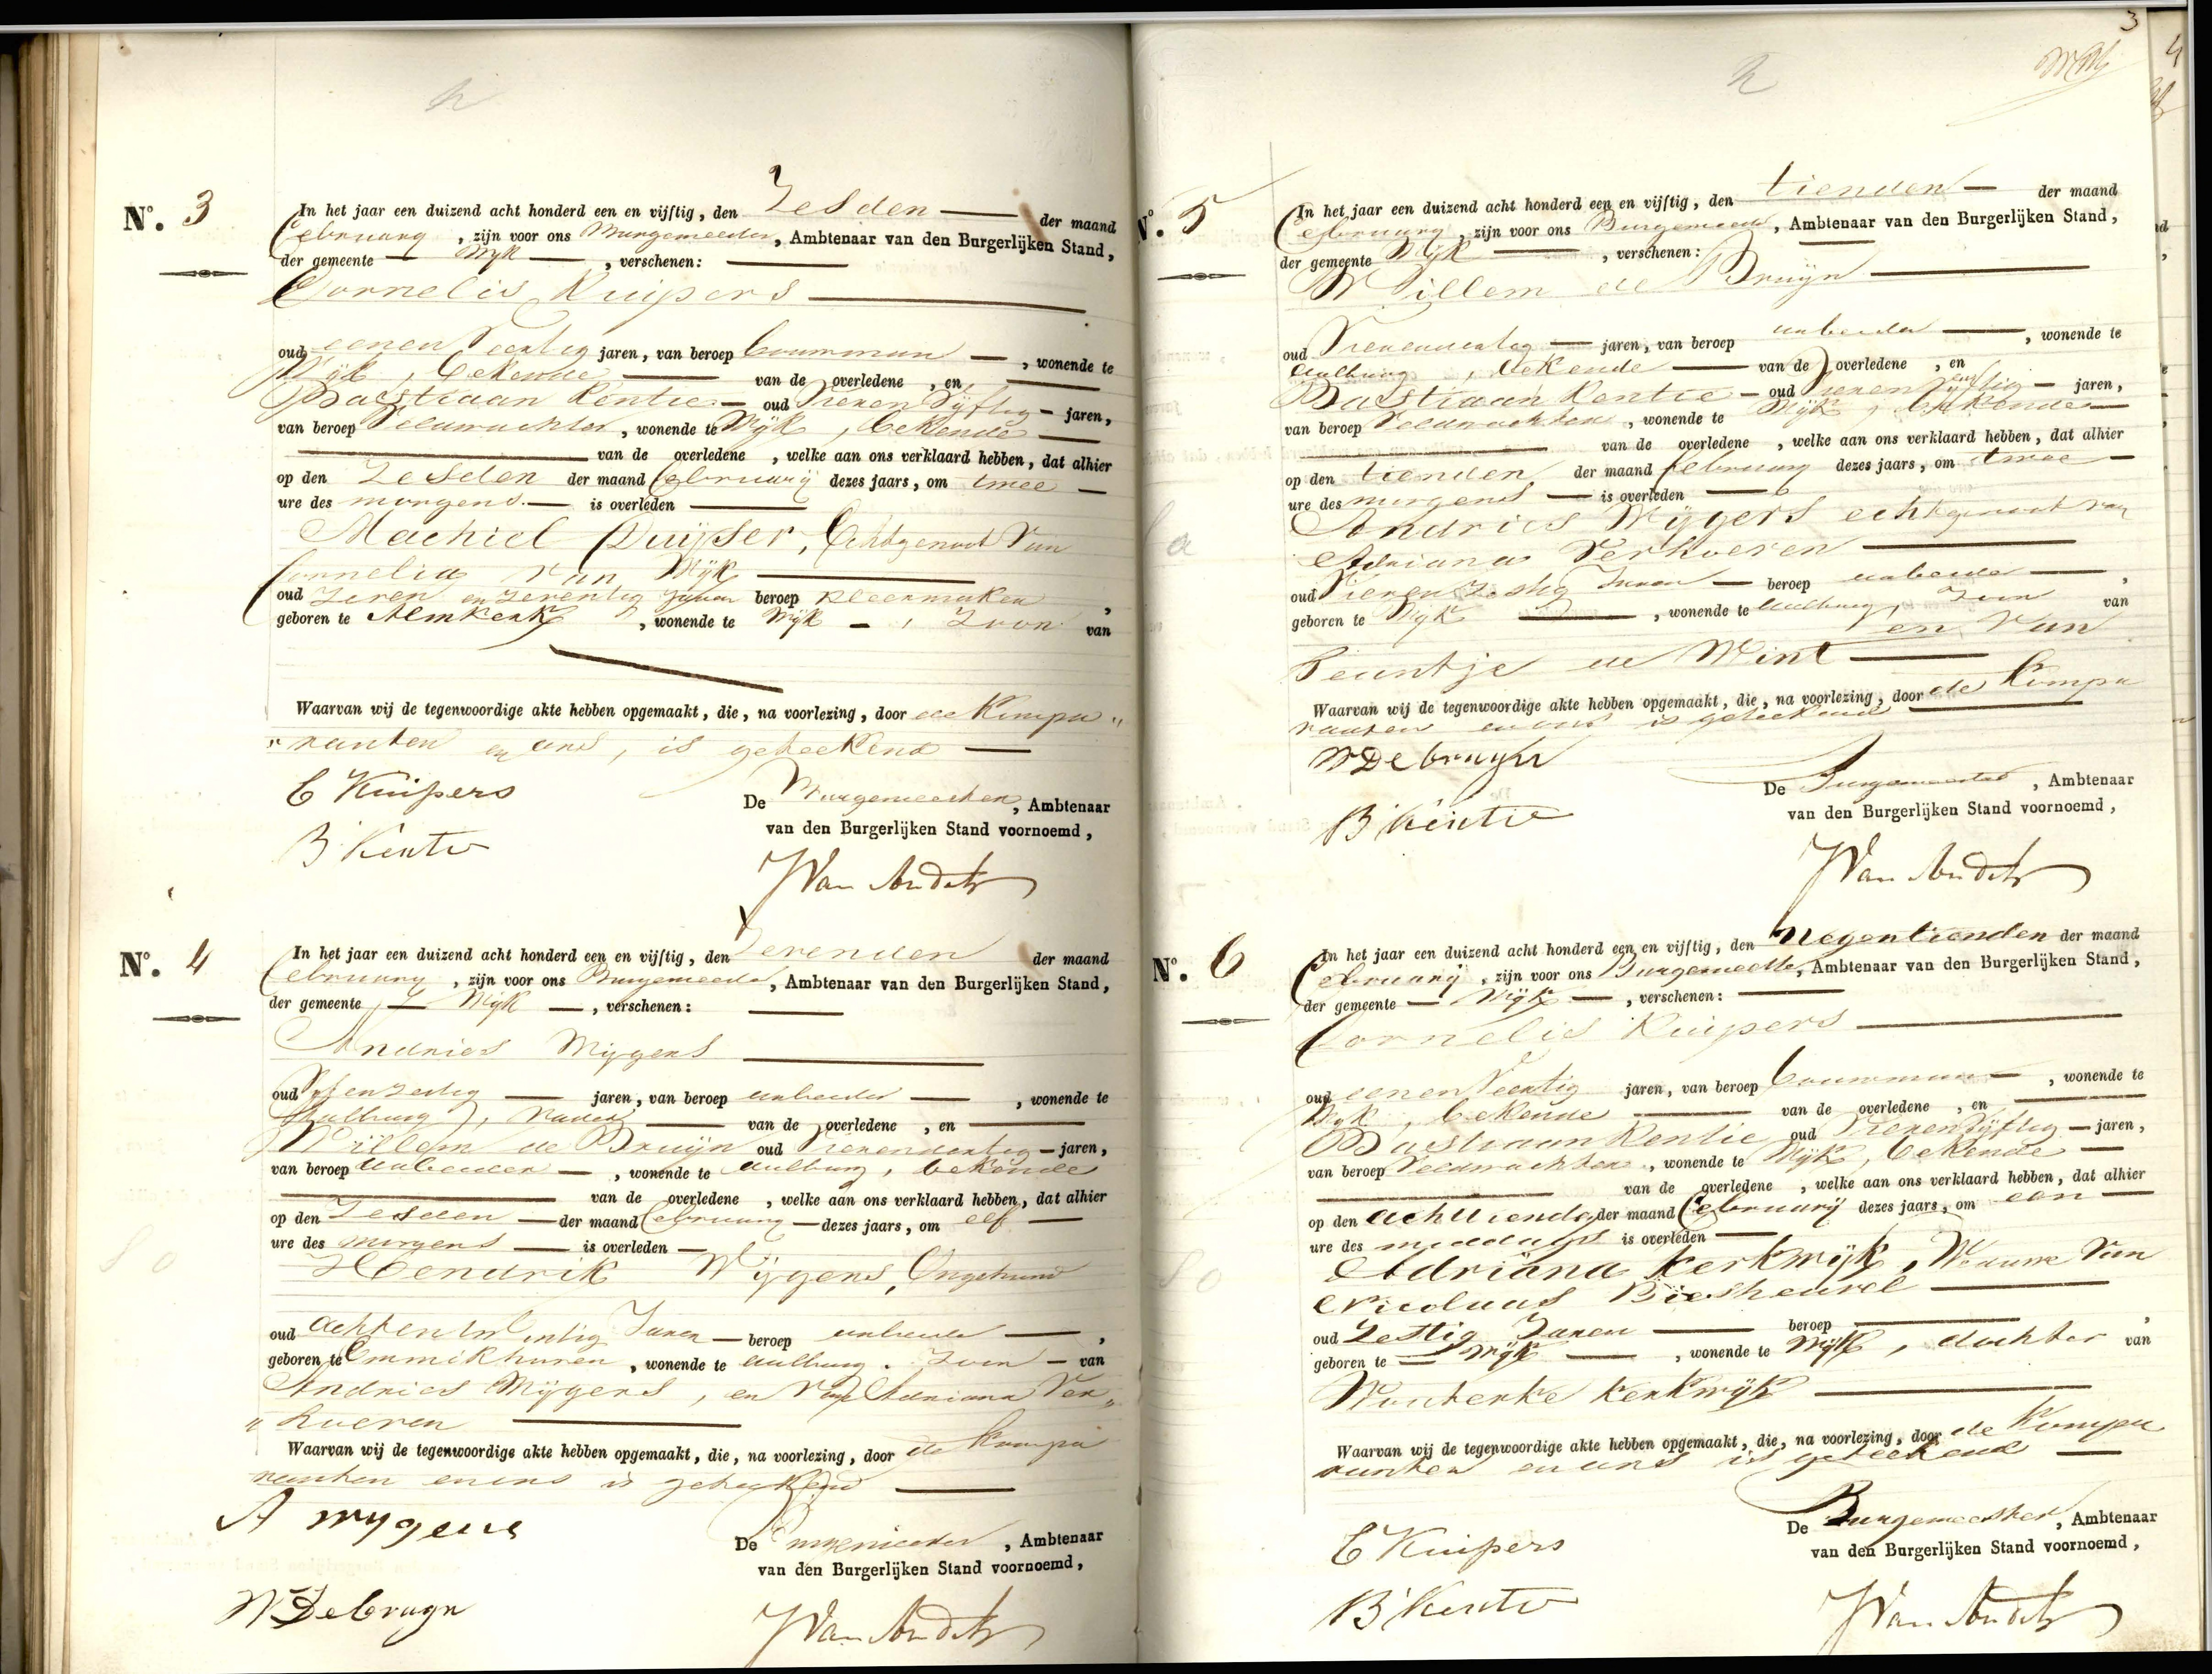 3
4
N°. 3
In het jaar een duizend acht honderd een en vijftig, den Zesden der maand
February, zijn voor ons Burgemeester, Ambtenaar van den Burgerlijken Stand,
der gemeente Wijk, verschenen:
Cornelis Kuipers
oud eenen Veertig jaren, van beroep bouwman, wonende te
Wijk, bekende van de overledene, en
Bastiaan Kentie oud Vierenvyftig jaren,
van beroep Veldwachter, wonende te Wijk, bekende
van de overledene, welke aan ons verklaard hebben, dat alhier
op den Zesden der maand February dezes jaars, om twee
ure des morgens is overleden
Machiel Duijser, Echtgenoot Van
Cornelia van Wijk
oud Zeven en Zeventig Jaren beroep kleermaker,
geboren te Almkerk, wonende te Wijk, Zoon van
Waarvan wij de tegenwoordige akte hebben opgemaakt, die, na voorlezing, door de Kompa„
„ranten en ons, is geteekend
C Kuipers
B Kentie
De Burgemeester, Ambtenaar
van den Burgerlijken Stand voornoemd,
N°. 4
In het jaar een duizend acht honderd een en vijftig, den Zevenden der maand
February, zijn voor ons Burgemeester, Ambtenaar van den Burgerlijken Stand,
der gemeente Wijk, verschenen:
Andries Wijgers
oud Vyfenzestig jaren, van beroep arbeider, wonende te
Aalburg, Vader van de overledene, en
Willem de Bruijn oud Vierendertig jaren,
van beroep arbeider, wonende te Aalburg, bekende
van de overledene, welke aan ons verklaard hebben, dat alhier
op den Zesden der maand February dezes jaars, om elf
ure des morgens is overleden
Hendrik Wijgers, Ongehuwd
oud achtentwintig Jaren beroep arbeider,
geboren te Emmikhuven, wonende te Aalburg. Zoon van
Andries Wijgers, en Van Adriana Ver„
„hoeven
Waarvan wij de tegenwoordige akte hebben opgemaakt, die, na voorlezing, door de Kompa
ranten en ons is geteekend
A wygers
W De bruyn
De Burgemeester, Ambtenaar
van den Burgerlijken Stand voornoemd,
N°. 5
In het jaar een duizend acht honderd een en vijftig, den tienden der maand
February, zijn voor ons Burgemeester, Ambtenaar van den Burgerlijken Stand,
der gemeente Wijk, verschenen:
Willem de Bruijn
oud Vierendertig jaren, van beroep arbeider, wonende te
Aalburg, bekende van de overledene, en
Bastiaan Kentie oud Vierenvyftig jaren,
van beroep Veldwachter, wonende te Wijk, bekende
van de overledene, welke aan ons verklaard hebben, dat alhier
op den tienden der maand February dezes jaars, om twee
ure des morgens is overleden
Andries Wijgers echtgenoot van
Adriana Verhoeven
oud Jaren beroep arbeider,
geboren te Wijk, wonende te Aalburg, Zoon van
en Van
de Wint
Waarvan wij de tegenwoordige akte hebben opgemaakt, die, na voorlezing, door de Kompa
ranten en ons is geteekend
W De bruyn
B Kentie
De Burgemeester, Ambtenaar
van den Burgerlijken Stand voornoemd,
N°. 6
In het jaar een duizend acht honderd een en vijftig, den Negentienden der maand
February, zijn voor ons Burgemeester, Ambtenaar van den Burgerlijken Stand,
der gemeente Wijk, verschenen:
Cornelis Kuipers
oud eenen Veertig jaren, van beroep bouwman, wonende te
Wijk, bekende van de overledene, en
Bastiaan Kentie oud Vierenvyftig jaren,
van beroep Veldwachter, wonende te Wijk, bekende
van de overledene, welke aan ons verklaard hebben, dat alhier
op den achttienden der maand February dezes jaars, om een
ure des middags is overleden
Adriana Kerkwijk, Weduwe Van
Nicolaas Biesheuvel
oud Zestig Jaren beroep,
geboren te Wijk, wonende te Wijk, dochter van
Kerkwijk
Waarvan wij de tegenwoordige akte hebben opgemaakt, die, na voorlezing, door de Kompa
ranten en ons is geteekend
C Kuipers
B Kentie
De Burgemeester, Ambtenaar
van den Burgerlijken Stand voornoemd,